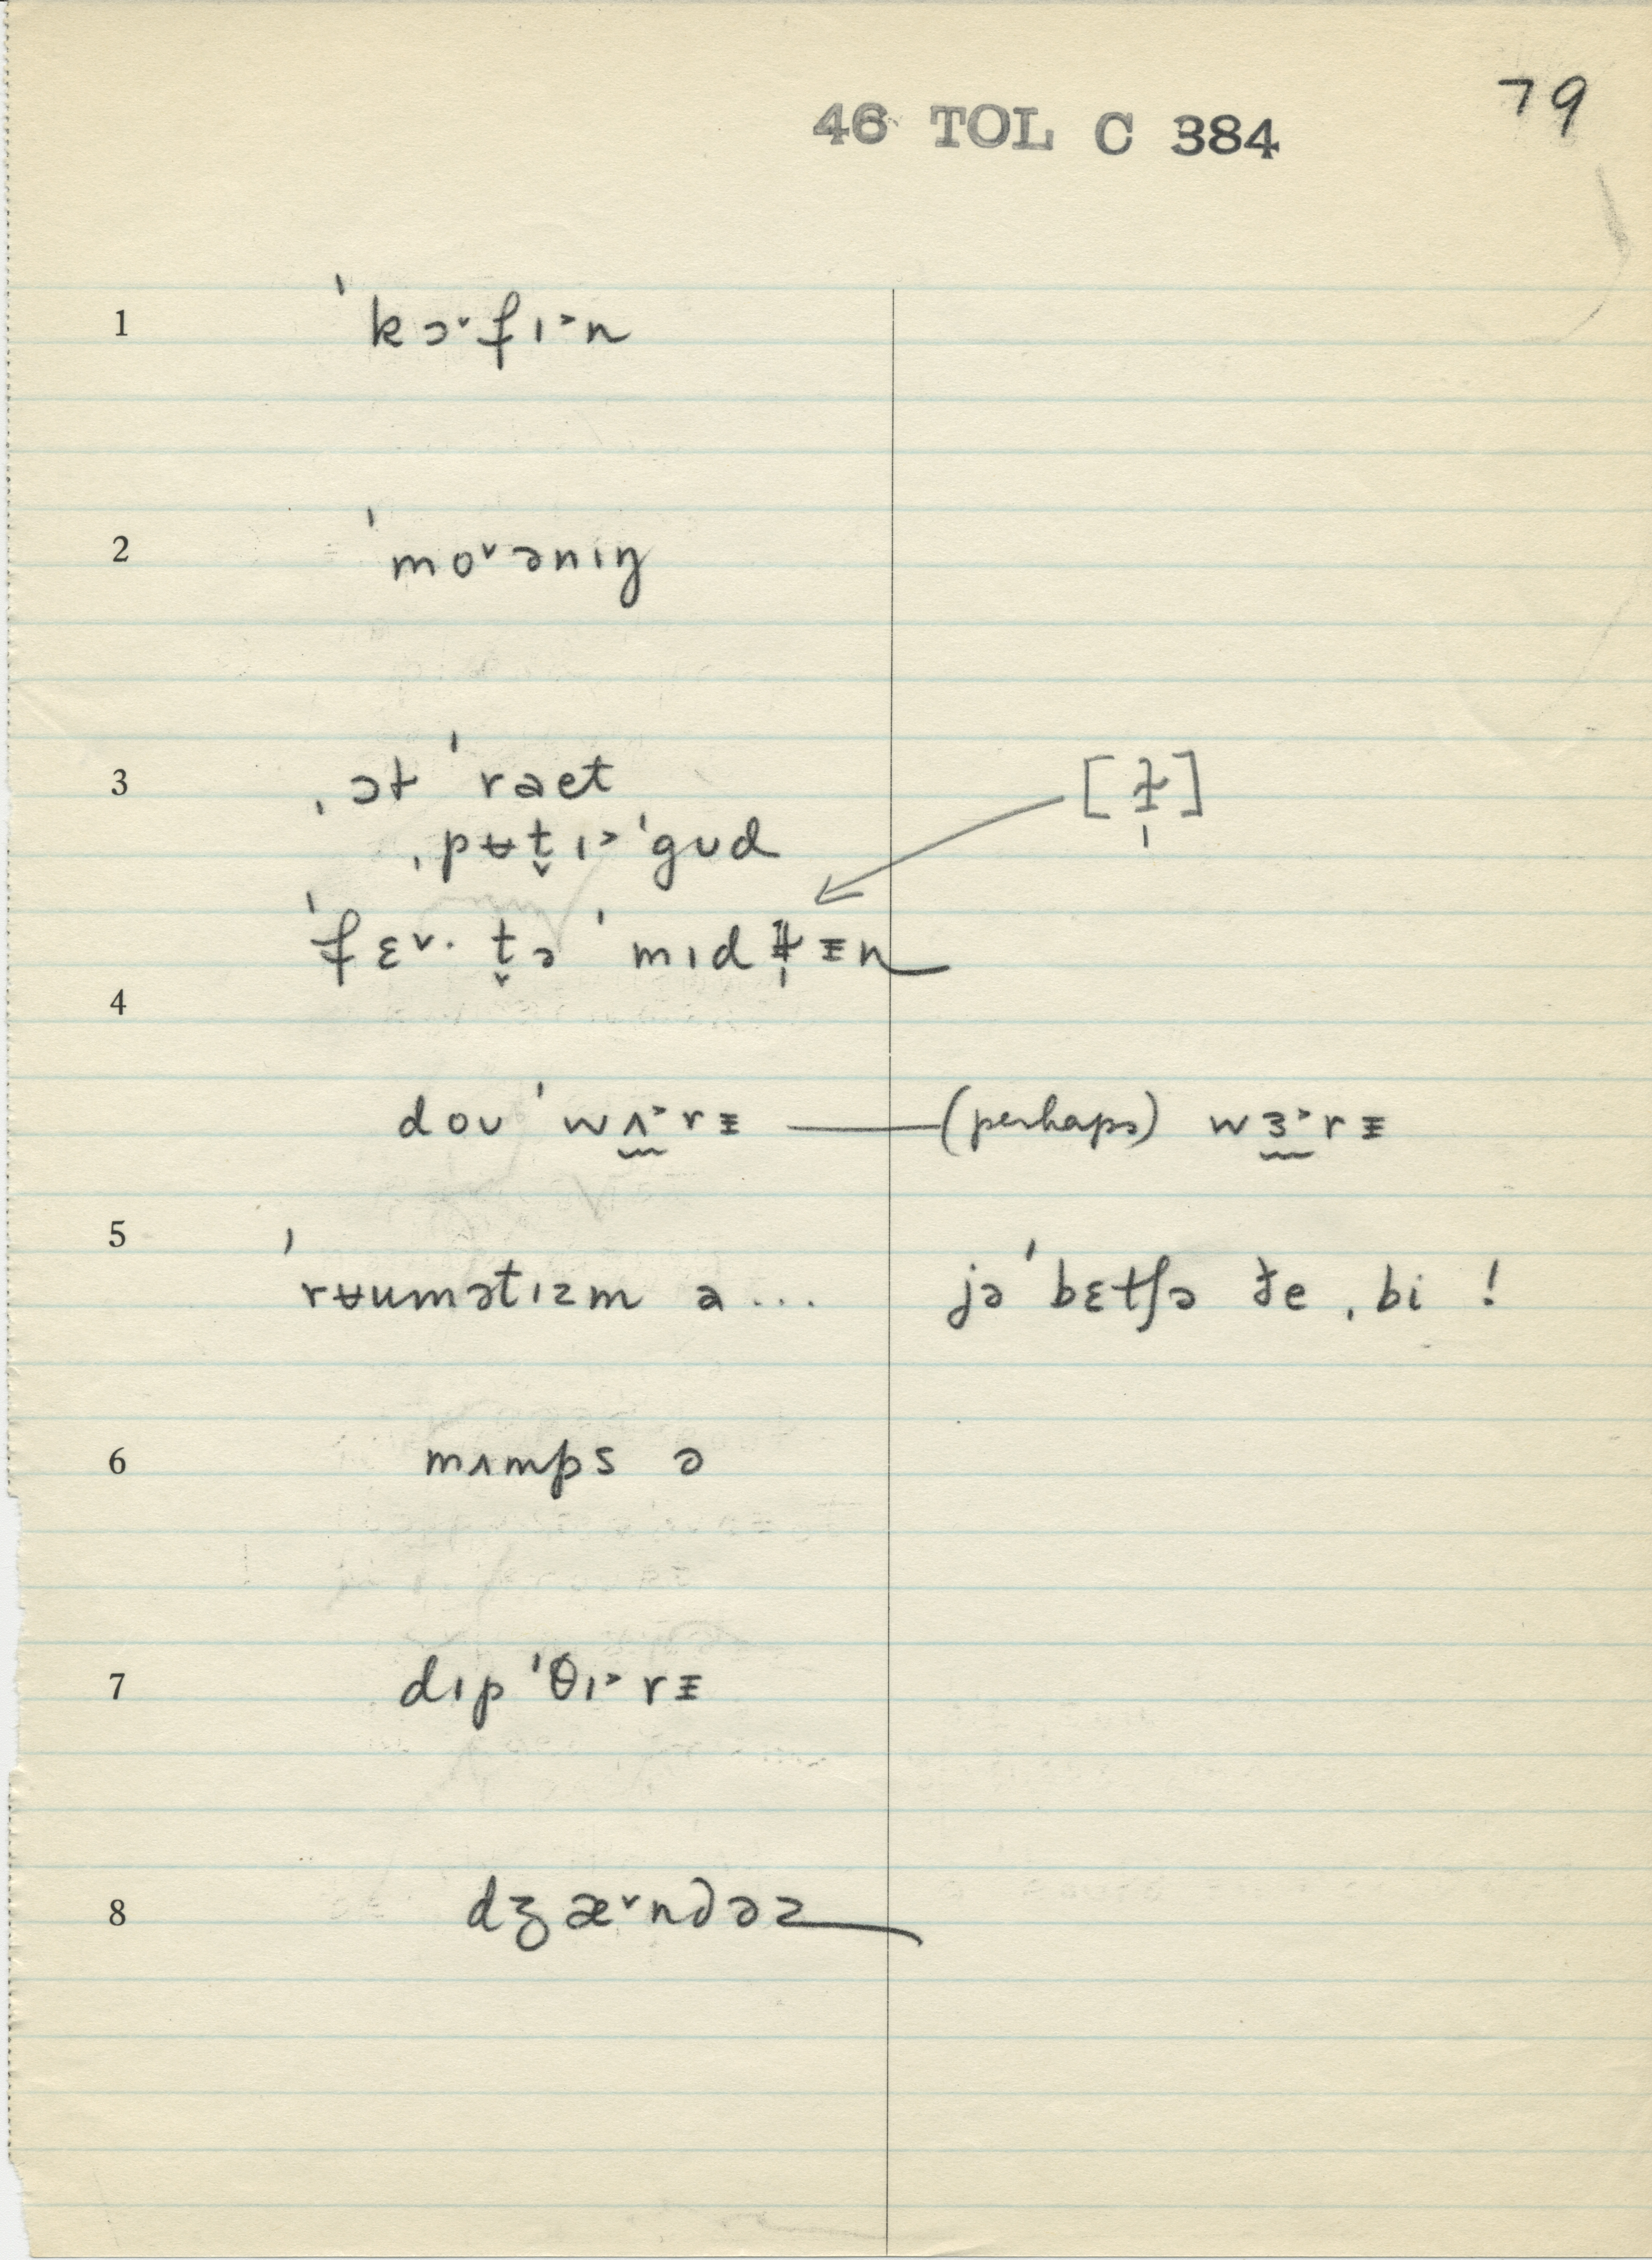 79
46 TOL C 384
1 ˈkɔ˅fɪ˃n
2 ˈmo˅ənɪŋ
3 ˌɔɫ ˈraet [ɫ̩]
ˌpʉt̬ɪ˃ˈgʊd
ˈfɛ˅· t̬ə ˈmɪdɫ̩ɪ̵n
4
doʊ ˈwʌ̰˃rɪ̵ — (perhaps) wɜ̰˃rɪ̵
5 ˈrʉuməɾɪzm a... jəˈbɛtʃə ðe ˌbi !
6 mʌmps ə
7 dɪpˈθɪ˃rɪ̵
8 dʒæ˅ndəz